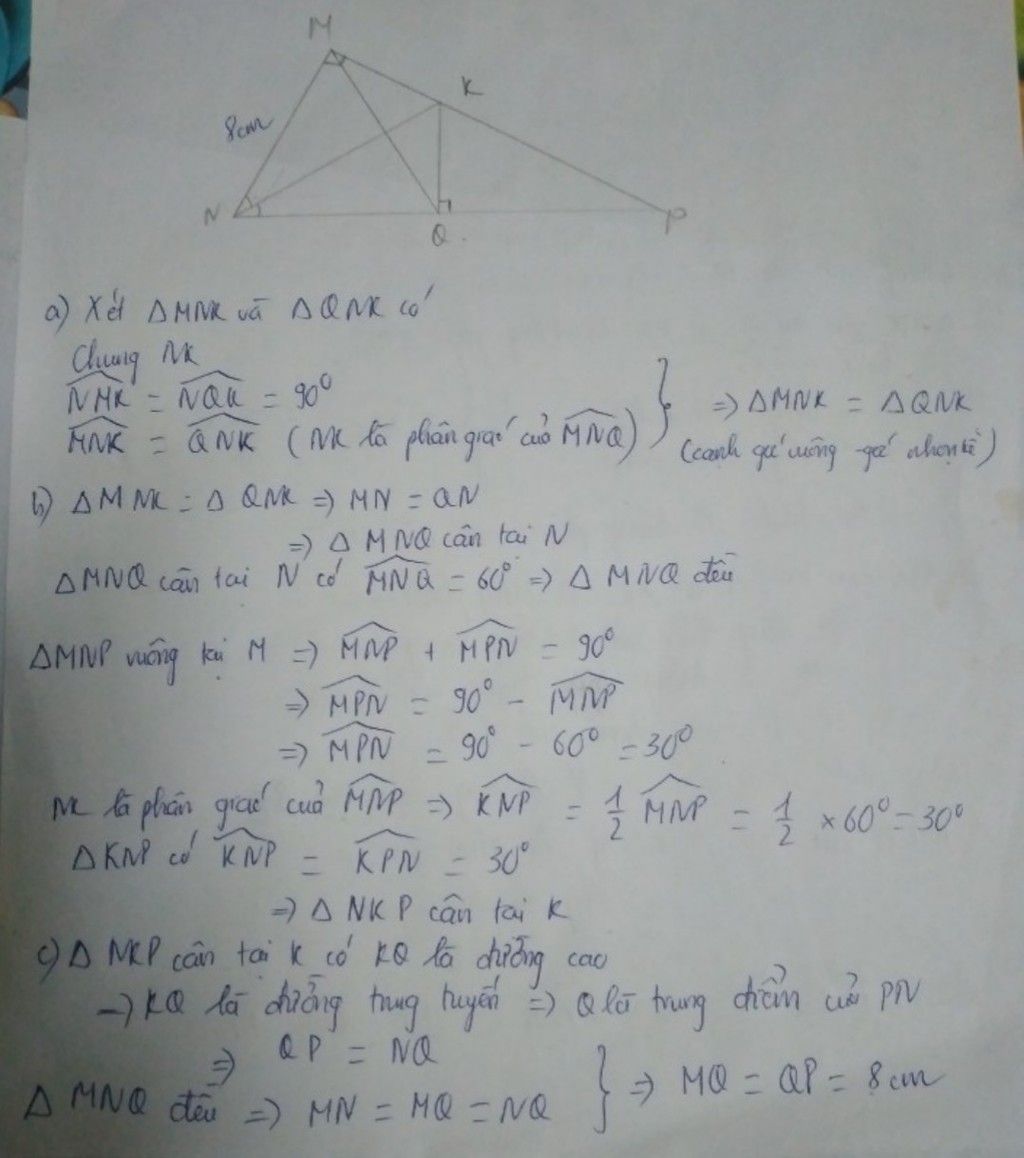 M
K
8cm
N
Q
P
a) Xét △MNK và △QNK có
Chung NK
\widehat{NMK} = \widehat{NQK} = 90⁰
\widehat{MNK} = \widehat{QNK} (NK là phân giác của \widehat{MNQ}) } ⇒ △MNK = △QNK
(cạnh góc vuông - góc nhọn kề)
b) △MNK = △QNK ⇒ MN = QN
⇒ △MNQ cân tại N
△MNQ cân tại N có \widehat{MNQ} = 60⁰ ⇒ △MNQ đều
△MNP vuông tại M ⇒ \widehat{MNP} + \widehat{MPN} = 90⁰
⇒ \widehat{MPN} = 90⁰ - \widehat{MNP}
⇒ \widehat{MPN} = 90⁰ - 60⁰ = 30⁰
NK là phân giác của \widehat{MNP} ⇒ \widehat{KNP} = 1/2 \widehat{MNP} = 1/2 × 60⁰ = 30⁰
△KNP có \widehat{KNP} = \widehat{KPN} = 30⁰
⇒ △NKP cân tại K
c) △NKP cân tại K có KQ là đường cao
→ KQ là đường trung tuyến ⇒ Q là trung điểm của PN
⇒ QP = NQ
△MNQ đều ⇒ MN = MQ = NQ } ⇒ MQ = QP = 8cm